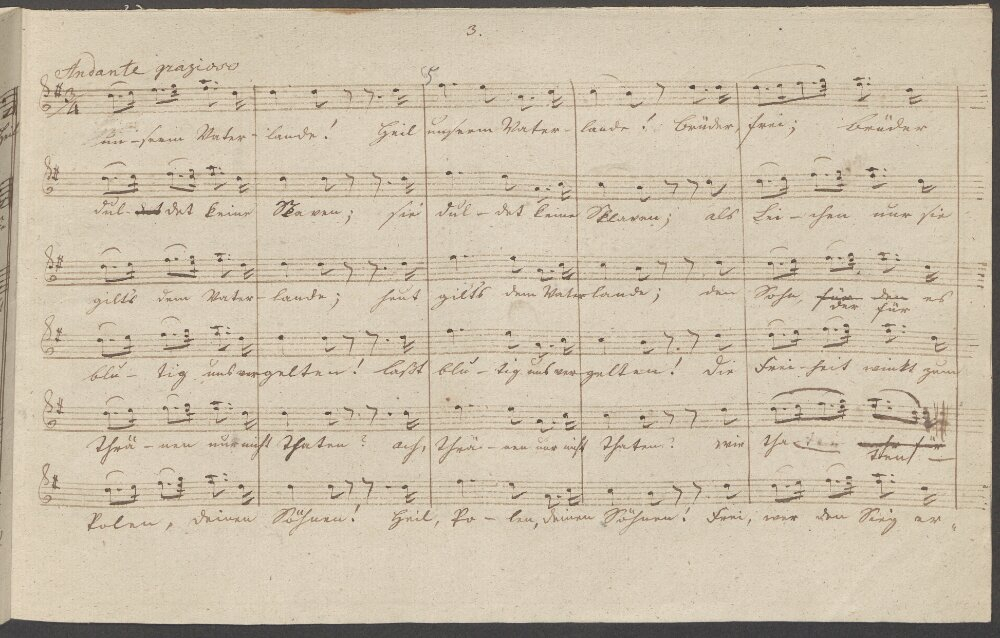 3.
Andante grazioso
5
3/4
un-serm Vater-lande! Heil unserm Vater-lande! Brüder, frei; Brüder
dul-det keine Sklaven; sie dul-det keine Sklaven; als Lei-chen nur sie
gilts dem Vater-lande; heut gilts dem Vaterlande; dem Sohn, für den es
der für
blu-tig uns vergelten! laßt blu-tig uns vergelten! Die Frei-heit winkt zum
Thrä-nen nur nicht Thaten? ach, Thrä-nen nur nicht Thaten? wir
Polen, deinen Söhnen! Heil, Po-len, deinen Söhnen! Frei, wer den Sieg er-